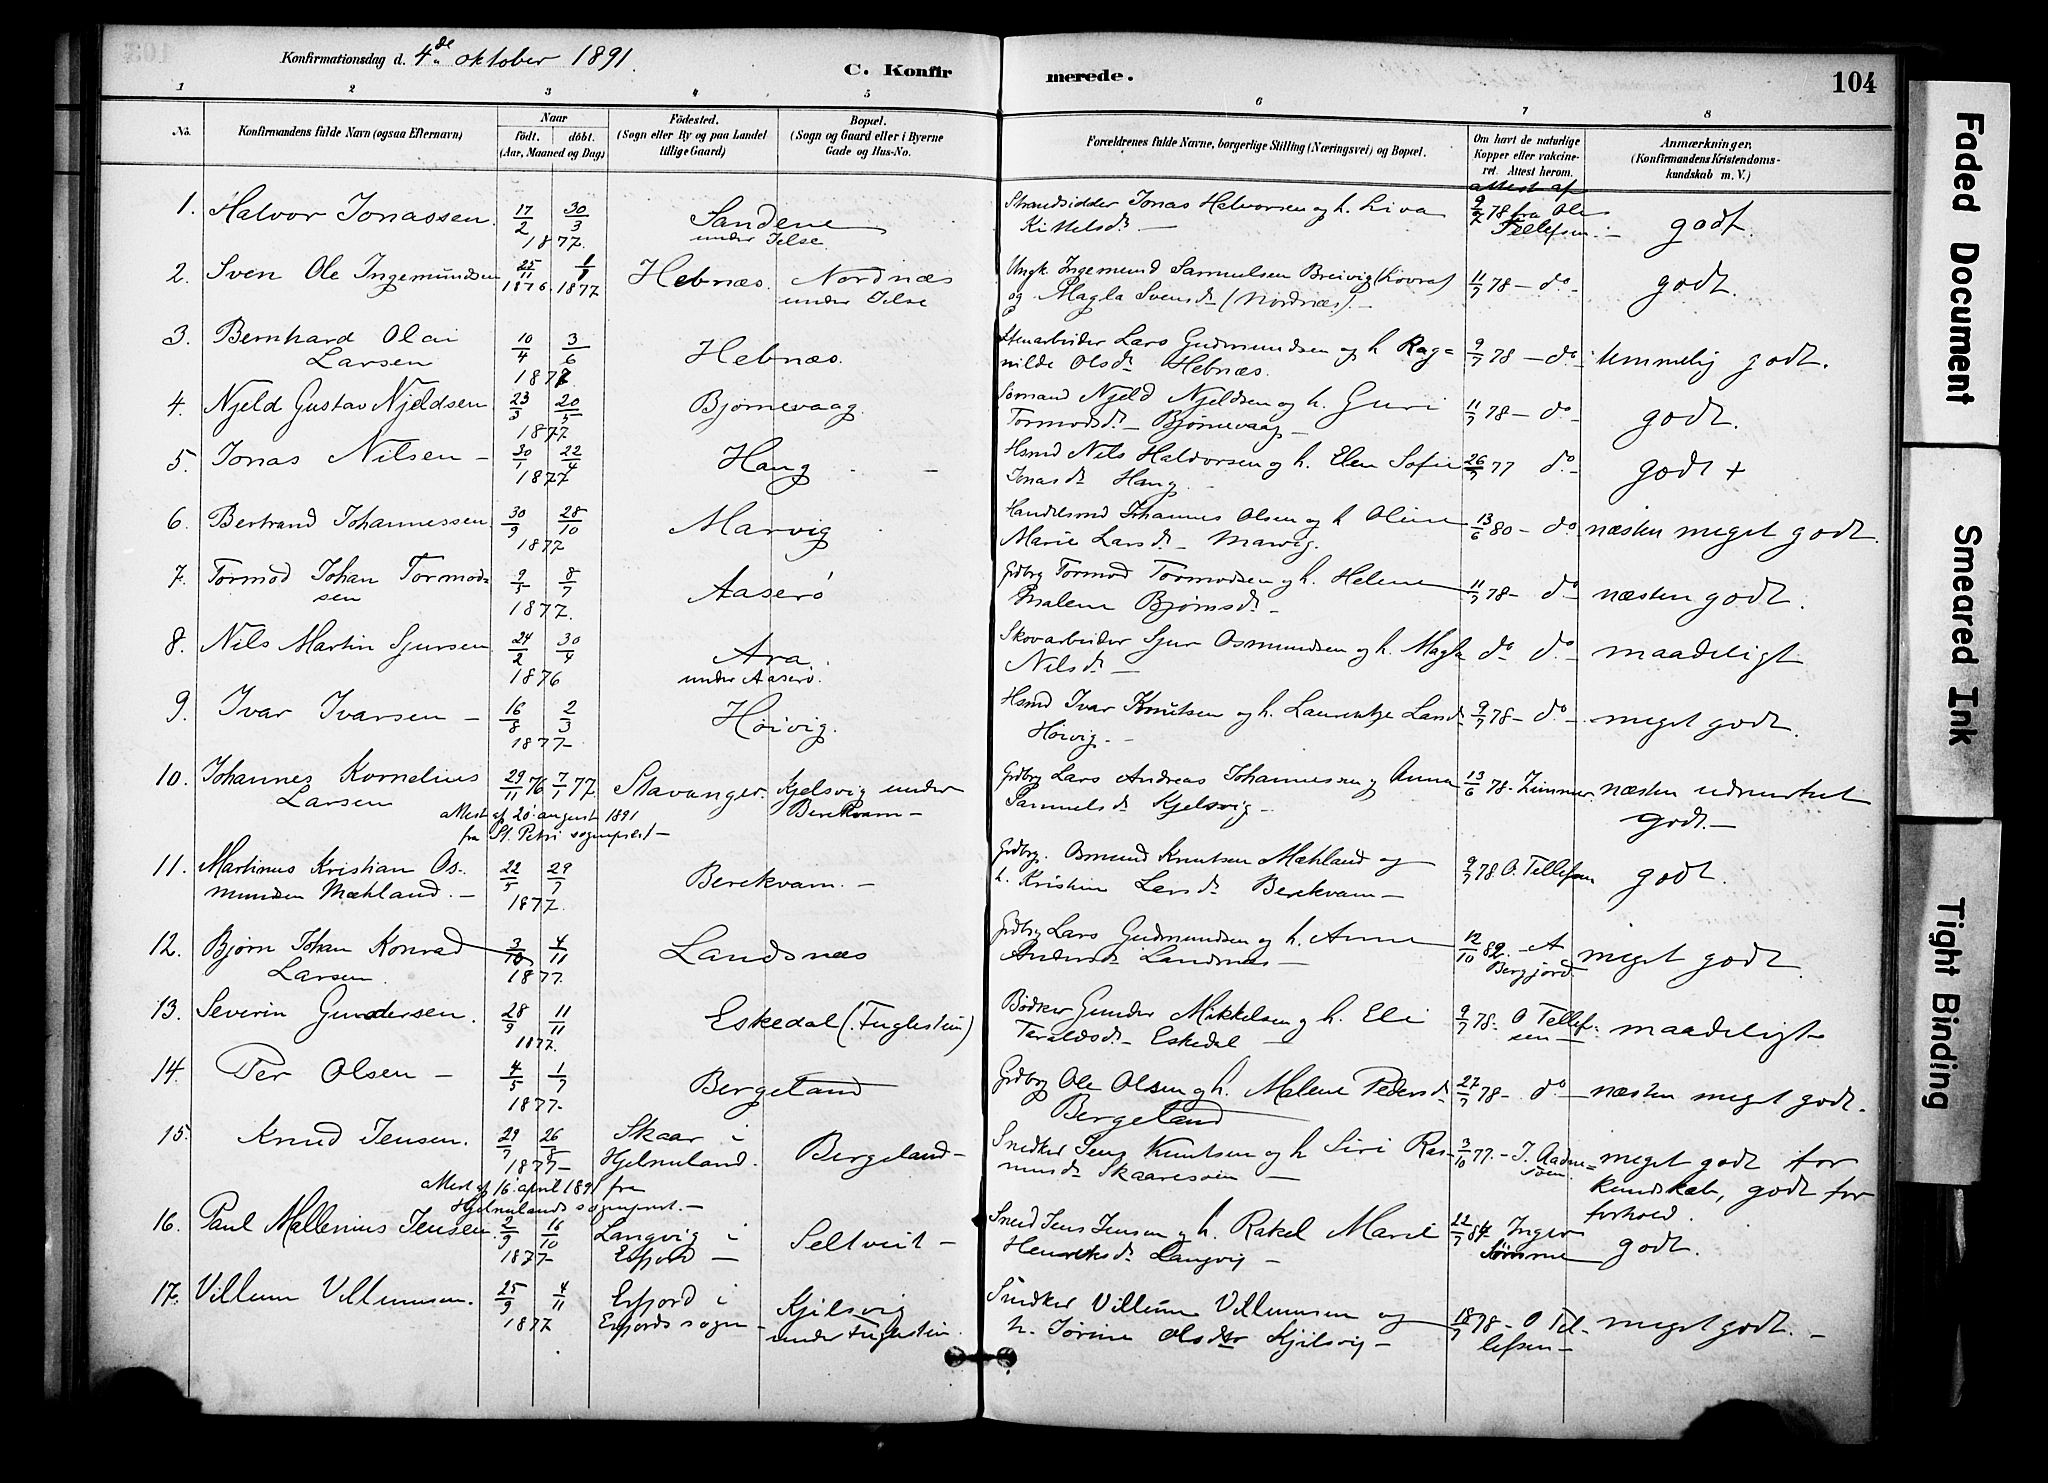 Konfirmationsdag d. 4de oktober 1891.
C. Konfirmerede.
104
1 2 3 4 5 6 7 8
No.
Konfirmandens fulde Navn (ogsaa Efternavn)
Naar
födt. döbt.
(Aar, Maaned og Dag)
Födested.
(Sogn eller By og paa Landet
tillige Gaard)
Bopæl.
(Sogn og Gaard eller i Byerne
Gade og Hus-No.
Forældrenes fulde Navne, borgerlige Stilling (Næringsvei) og Bopæl.
Om havt de naturlige
Kopper eller vakcine-
ret. Attest herom.
Anmærkninger.
(Konfirmandens Kristendoms-
kundskab m. V.)
1. Halvor Jonassen. 17/2 30/3 1877. Sandene under Jelse. Strandsidder Jonas Halvorsen og h. Liva
Kittelsd. — attest af 9/7 78 fra Ole Tellefsen. — godt.
2. Sven Ole Ingemundsen 25/11 1876. 1/1 1877 Hebnæs. Nordnæs under Jelse Ungk. Ingemund Samuelsen Breivig (Kovra)
og Magla Svensd. (Nordnæs). — 11/7 78 — do — godt.
3. Bernhard Olai
Larsen 10/4 3/6 1877 Hebnæs. Stenarbeider Lars Gudmundsen og h Rag=
nilde Olsd. Hebnæs. 9/7 78 — do — temmelig godt.
4. Njeld Gustav Njeldsen 23/3 20/5 1877 Bjørnevaag. Sømand Njeld Njeldsen og h. Guri
Tormodsd. — Bjørnevaag — 11/7 78 — do — godt.
5. Jonas Nilsen — 30/1 22/4 1877 Haug — Hsmd Nils Haldorsen og h. Elen Sofie
Jonasd. Haug. 26/7 77 do — godt +
6. Bertrand Johannessen 30/9 28/10 1877 Marvig Handelsmd Johannes Olsen og h Oline
Marie Larsd. — Marvig. 13/6 80 — do næsten meget godt.
7. Tormod Johan Tormod=
sen 9/5 8/7 1877. Aaserö Grdbrg Tormod Tormodsen og h. Helene
Malene Bjørnsd. — 11/7 78 — do — næsten godt.
8. Nils Martin Sjursen 24/2 30/4 1876 Ara. under Aaserö. Skovarbeider Sjur Osmundsen og h. Magla
Nilsd. — do do — maadeligt
9. Ivar Ivarsen — 16/8 2/3 1877 — Høivig. Hsmd Ivar Knutsen og h. Laurentze Larsd.
Høivig. — 9/7 78 — do — meget godt.
10. Johannes Kornelius
Larsen 29/11 76 7/1 77 Stavanger. Kjelsvig under
Berekvam — Grdbrg Lars Andreas Johannessen og Anna
Samuelsd. Kjelsvig. — 13/6 78 - Zimmer. næsten udmerket
godt. —
Attest af 20. august 1891
fra St. Petri sogneprest —
11. Martinus Kristian Os-
mundsen Mæhland. — 22/5 29/7 1877. Berekvam. — Grdbrg. Osmund Knutsen Mæhland og
h. Kristine Larsd. Berekvam — 9/7 78. O. Tellefsen godt.
12. Bjørn Johan Konrad
Larsen. 3/10 4/11 1877. Landsnæs Grdbrg Lars Gudmundsen og h. Anne
Andersd. Landsnæs — 12/10 82. — A
Bergjord. meget godt.
13. Severin Gundersen. 28/9 11/11 1877. Eskedal (Fuglestein) Bødker Gunder Mikkelsen og h. Eli
Taraldsd. — Eskedal — 9/7 78 — O Tellef-
sen — maadeligt —
14. Per Olsen — 4/5 1/7 1877. Bergeland Grdbrg Ole Olsen og h. Malene Pedersd.
Bergeland 27/7 78 — do — næsten meget godt.
15. Knud Jensen. 29/7 26/8 1877 — Skaar i
Hjelmeland. Bergeland — Snedker Jens Knutsen og h Siri Ras-
musd. Skaaresoen — 3/10 77. — J. Aadne=
sen. meget godt for
kundskab, godt for
forhold.
Attest af 16. april 1891 fra
Hjelmelands sogneprest. —
16. Paul Mallenius Jensen. 2/9 16/10 1877 — Langvig i
Erfjord — Seltveit — Smed Jens Jensen og h. Rakel Marie
Henriksd. Langvig — 22/7 84 Inger
Sømme godt.
17. Villum Villumsen. 25/9 4/11 1877 Erfjord i
Erfjords sogn — Kjilsvig
under Fuglestein. Snedker Villum Villumsen og
h. Jørine Olsdtr Kjilsvig — 18/7 78 — O Tel-
lefsen — meget godt. —
Faded Document
Smeared Ink
Tight Binding